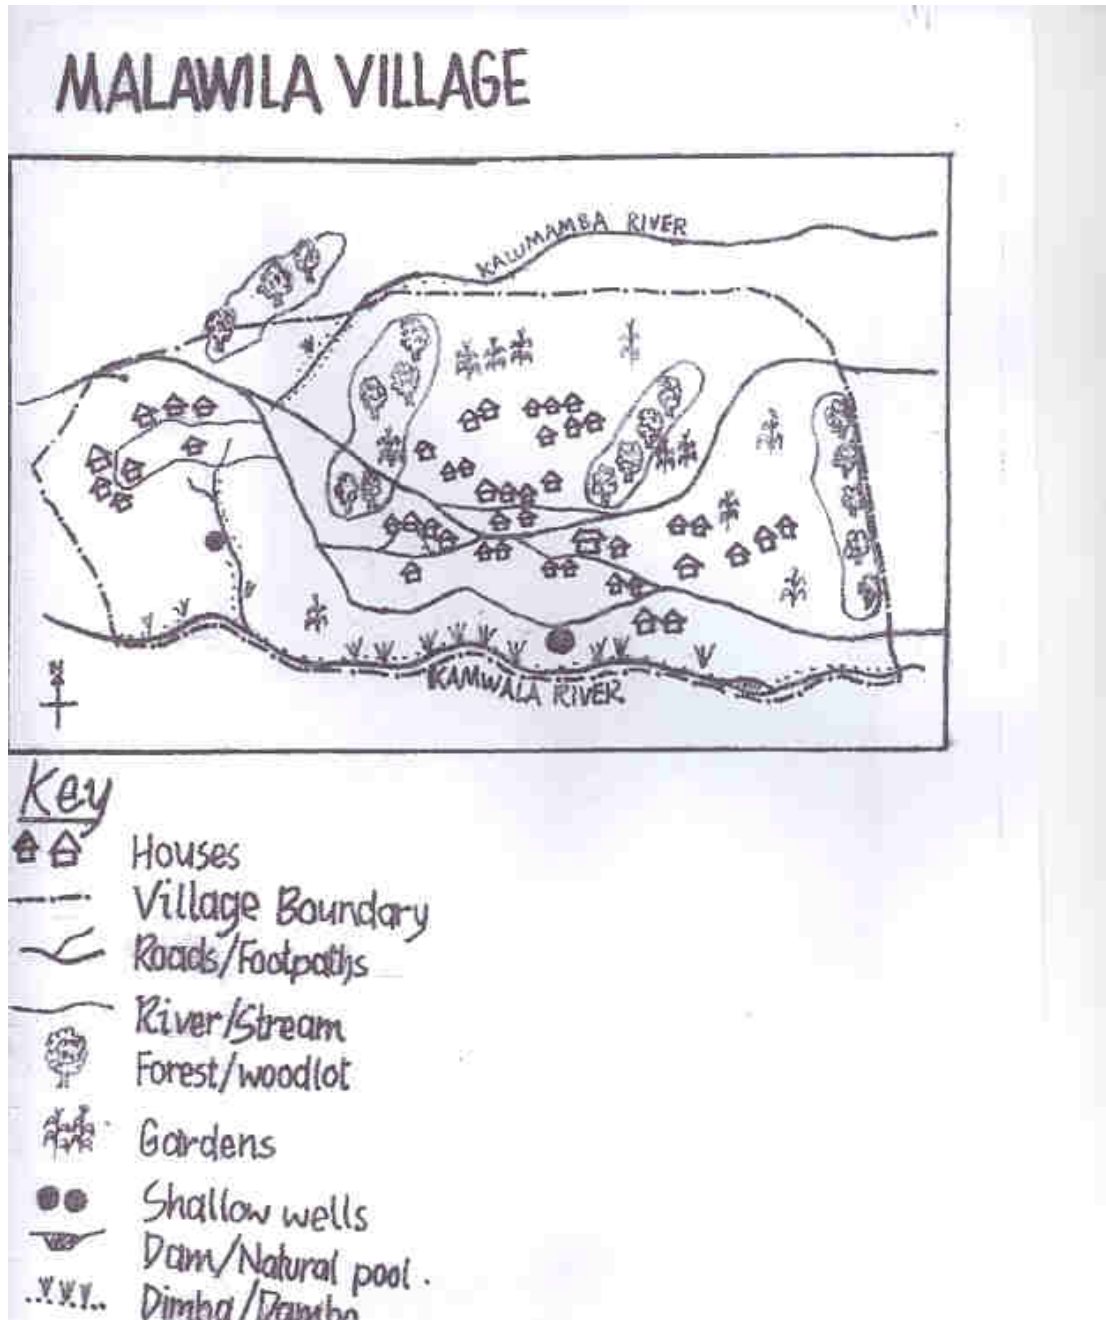 MALAWILA VILLAGE
KALUMAMBA RIVER
N
KAMWALA RIVER
Key
Houses
Village Boundary
Roads/Footpaths
River/Stream
Forest/woodlot
Gardens
Shallow wells
Dam/Natural pool.
Dimba/Dambo